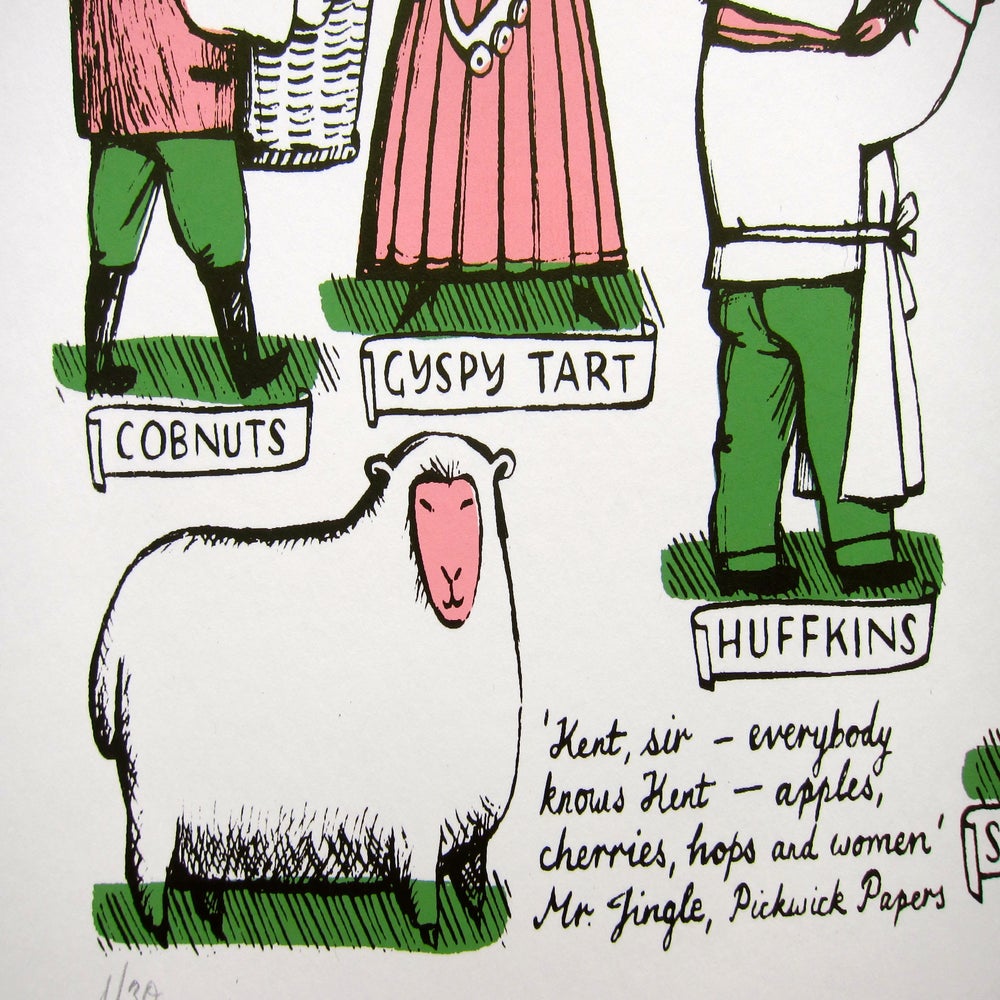 GYSPY TART
COBNUTS
HUFFKINS
'Kent, sir – everybody
knows Kent – apples,
cherries, hops and women'
Mr. Jingle, Pickwick Papers
1/30